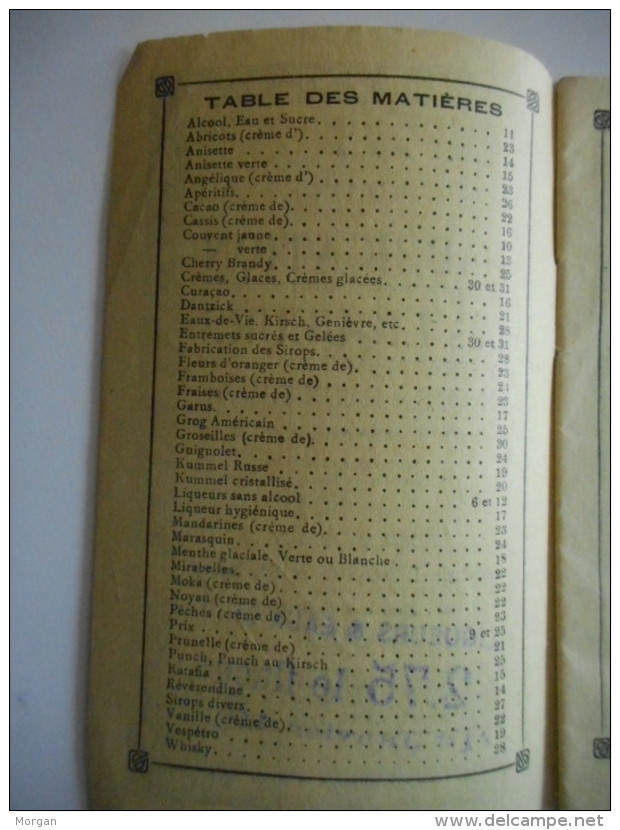 TABLE DES MATIÈRES
Alcool, Eau et Sucre. 11
Abricots (crème d'). 23
Anisette 14
Anisette verte 15
Angélique (crème d') 23
Apéritifs 26
Cacao (crème de). 22
Cassis (crème de). 16
Couvent jaune 10
— verte 13
Cherry Brandy. 25
Crèmes, Glaces, Crèmes glacées. 30 et 31
Curaçao 16
Dantzick 21
Eaux-de-Vie. Kirsch, Genièvre, etc. 28
Entremets sucrés et Gelées 30 et 31
Fabrication des Sirops. 28
Fleurs d'oranger (crème de). 23
Framboises (crème de) 21
Fraises (crème de) 23
Garus. 17
Grog Américain 25
Groseilles (crème de). 30
Guignolet. 24
Kummel Russe 19
Kummel cristallisé. 20
Liqueurs sans alcool 6 et 12
Liqueur hygiénique. 17
Mandarines (crème de). 23
Marasquin 24
Menthe glaciale, Verte ou Blanche. 18
Mirabelles. 22
Moka (crème de). 22
Noyau (crème de) 22
Pêches (crème de). 23
Prix 9 et 25
Prunelle (crème de) 21
Punch, Punch au Kirsch 25
Ratafia 15
Révérendine 14
Sirops divers 27
Vanille (crème de). 22
Vespétro 19
Whisky 28
Morgan
delcampe.net